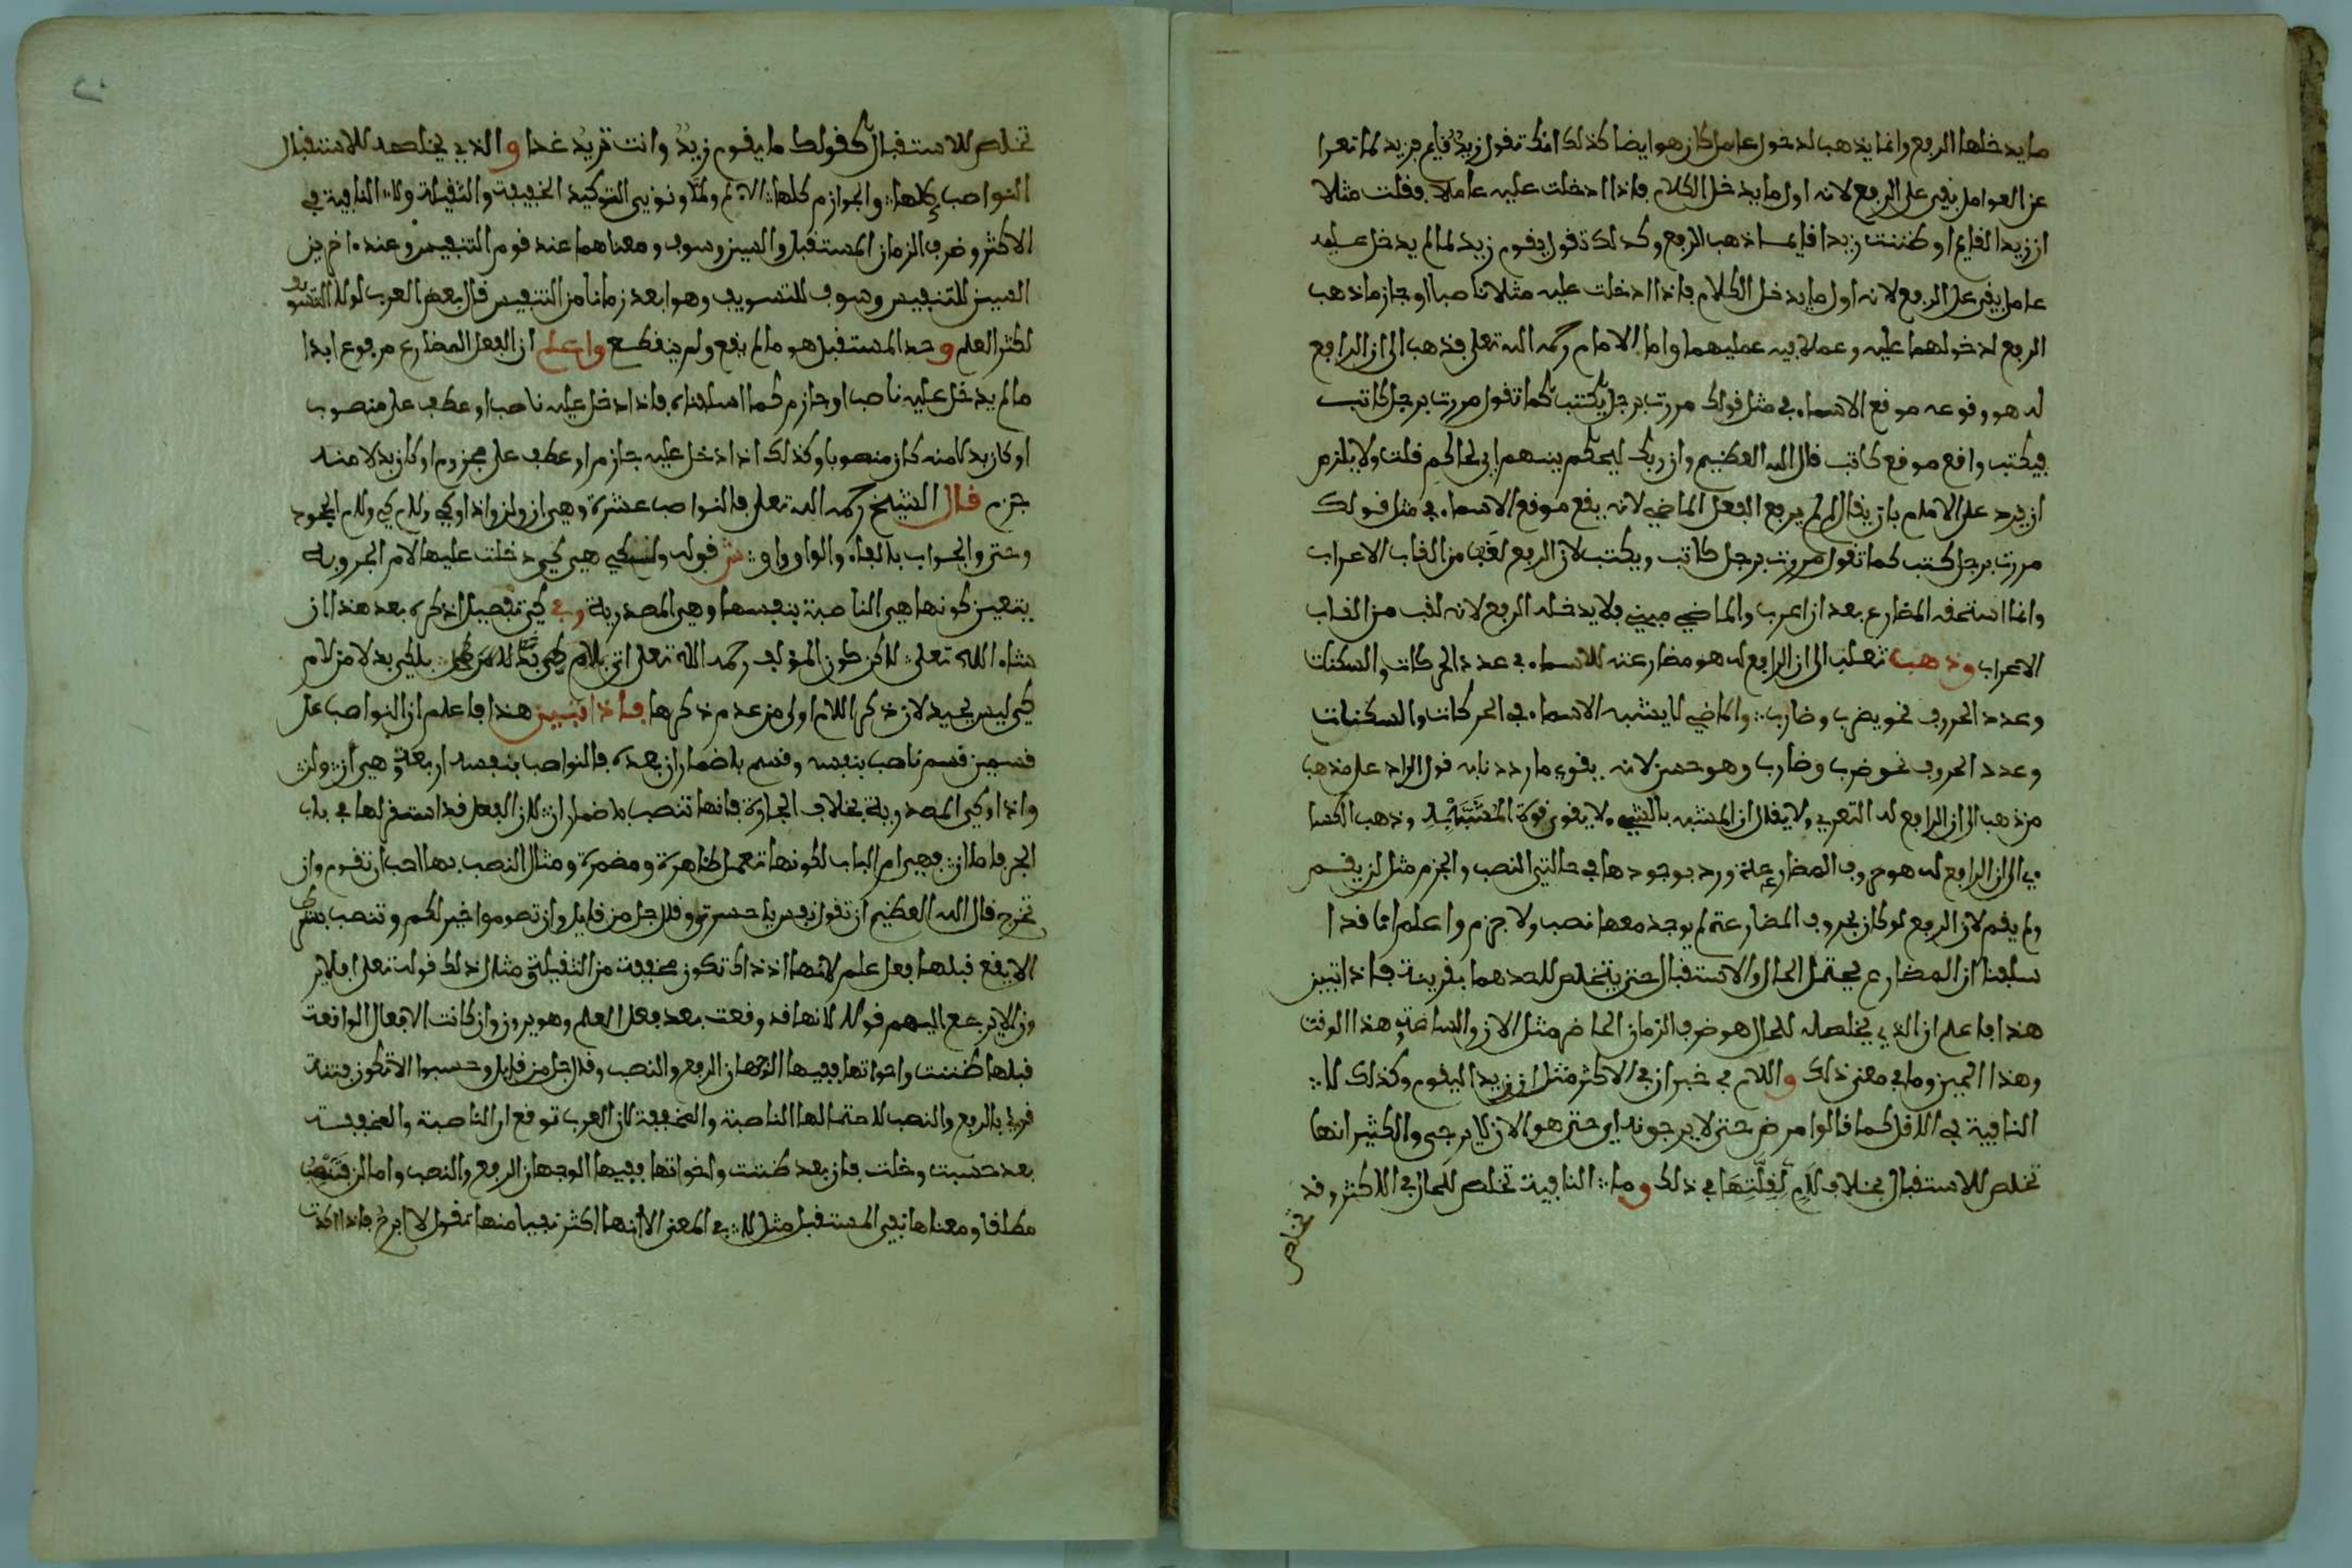 ما يدخلها الرفع وانما يذهب لدخول عامل كان هو ايضا كذلك انك تقول زيد قايم فزيد لما تعرا
عن العوامل بقي على الرفع لانه اول ما يدخل الكلام فاذا ادخلت عليه عاملا فقلت مثلا
ان زيدا لقايم او ظننت زيدا قايما ذهب الرفع وكذلك تقول يقوم زيد لما لم يدخل عليه
عامل بقي على الرفع لانه اول ما يدخل الكلام فاذا ادخلت عليه مثلا ناصبا او جازما ذهب
الرفع لدخولهما عليه وعملا فيه عمليهما واما الامام رحمه الله تعلى فذهب الى ان الرافع
له هو وقوعه موقع الاسماء في مثل قولك مررت برجل يكتب كما تقول مررت برجل كاتب
فيكتب واقع موقع كاتب قال الله العظيم وان ربك ليحكم بينهم اي لحاكم قلت ولا يلزم
ان يرد على الامام بان يقال لم لم يرفع الفعل الماضي لانه يقع موقع الاسماء في مثل قولك
مررت برجل كتب كما تقول مررت برجل كاتب ويكتب لان الرفع لقب من القاب الاعراب
وانما استحقه المضارع بعد ان اعرب والماضي مبني فلا يدخله الرفع لانه لقب من القاب
الاعراب وذهب ثعلب الى ان الرافع له هو مضارعته للاسماء في عدد الحركات والسكنات
وعدد الحروف نحو يضرب وضارب والماضي لا يشبه الاسماء في الحركات والسكنات
وعدد الحروف نحو ضرب وضارب وهو حسن لانه يقوي ما رددنا به قول الراد على مذهب
من ذهب الى ان الرافع له التعري ولا يقال ان المشبه بالشيء لا يقوى قوة المشبه به وذهب الكسا
ءي الى ان الرافع له هو حروف المضارعة ورد بوجودها في حالتي النصب والجزم مثل لن يقسم
ولم يقم لان الرفع لو كان بحروف المضارعة لم يوجد معها نصب ولا جزم واعلم انما قد ا
سلفنا ان المضارع يحتمل الحال والاستقبال حتى يتخلص لاحدهما بقرينة فاذا تبين
هذا فاعلم ان الذي يخلصه للحال هو ظرف الزمان الحاضر مثل الان والساعة وهذا الوقت
وهذا الحين وما في معنى ذلك واللام في خبر ان في الاكثر مثل ان زيدا ليقوم وكذلك لا
النافية في الاقل كما قالوا مرض حتى لا يرجونه اي حتى هو الان لا يرجى والكثير انها
تخلص للاستقبال بخلاف لام لقلتها في ذلك وما النافية تخلص للحال في الاكثر وقد
تخلص
تخلص للاستقبال كقولك ما يقوم زيد وانت تريد غدا والذي يخلصه للاستقبال
النواصب كلها والجوازم كلها الا لم ولما ونوني التوكيد الخفيفة والثقيلة ولا النافية في
الاكثر وظرف الزمان المستقبل والسين وسوف ومعناهما عند قوم التنفيس وعند ءاخرين
السين للتنفيس وسوف للتسويف وهو ابعد زمانا من التنفيس قال بعض العرب لولا التسويف
لكثر العلم وحد المستقبل هو ما لم يقع ولم ينقطع واعلم ان الفعل المضارع مرفوع ابدا
ما لم يدخل عليه ناصب او جازم كما اسلفناه فاذا دخل عليه ناصب او عطف على منصوب
او كان بدلا منه كان منصوبا وكذلك اذا دخل عليه جازم او عطف على مجزوم او كان بدلا منه
جزم قال الشيخ رحمه الله تعلى فالنواصب عشرة وهي ان ولن واذا وكي ولام كي ولام الجحود
وحتى والجواب بالفاء والواو واو ش قوله ولكي هي كي دخلت عليها لام الجر وبه
يتعين كونها هي الناصبة بنفسها وهي المصدرية وفي كي تفصيل اذكره بعد هذا ان
شاء الله تعلى لاكن كون المؤلف رحمه الله تعلى اتى بلام كي بلكي بدلا من لام
كي ليس بجيد لان ذكر اللام اولى من عدم ذكرها فاذا تبين هذا فاعلم ان النواصب على
قسمين قسم ناصب بنفسه وقسم باضمار ان بعده فالنواصب بنفسه اربعة وهي ان ولن
واذا وكي المصدرية بخلاف الجارة فانها تنصب باضمار ان لان الفعل قد استقر لها في باب
الجر فاما ان فهي ام الباب لكونها تعمل ظاهرة ومضمرة ومثال النصب بها احب ان تقوم وان
تخرج قال الله العظيم ان تقول نفس يا حسرتى وقال جل من قايل وان تصوموا خير لكم وتنصب بشرط
الا يقع قبلها فعل علم لانها اذ ذاك تكون مخففة من الثقيلة مثال ذلك قوله تعلى افلا ير
ون الا يرجع اليهم قولا لانها قد وقعت بعد فعل العلم وهو يرون وان كانت الافعال الواقعة
قبلها ظننت واخواتها ففيها الوجهان الرفع والنصب وقال جل من قايل وحسبوا الا تكون فتنة
قرئ بالرفع والنصب لاحتمالها الناصبة والمخففة لان العرب توقع ان الناصبة والمخففة
بعد حسبت وخلت فان بعد ظننت واخواتها ففيها الوجهان الرفع والنصب واما لن فتنصب
مطلقا ومعناها نفي المستقبل مثل لا في المعنى الا انها اكثر نفيا منها تقول لا ابرح فاذا اكدت